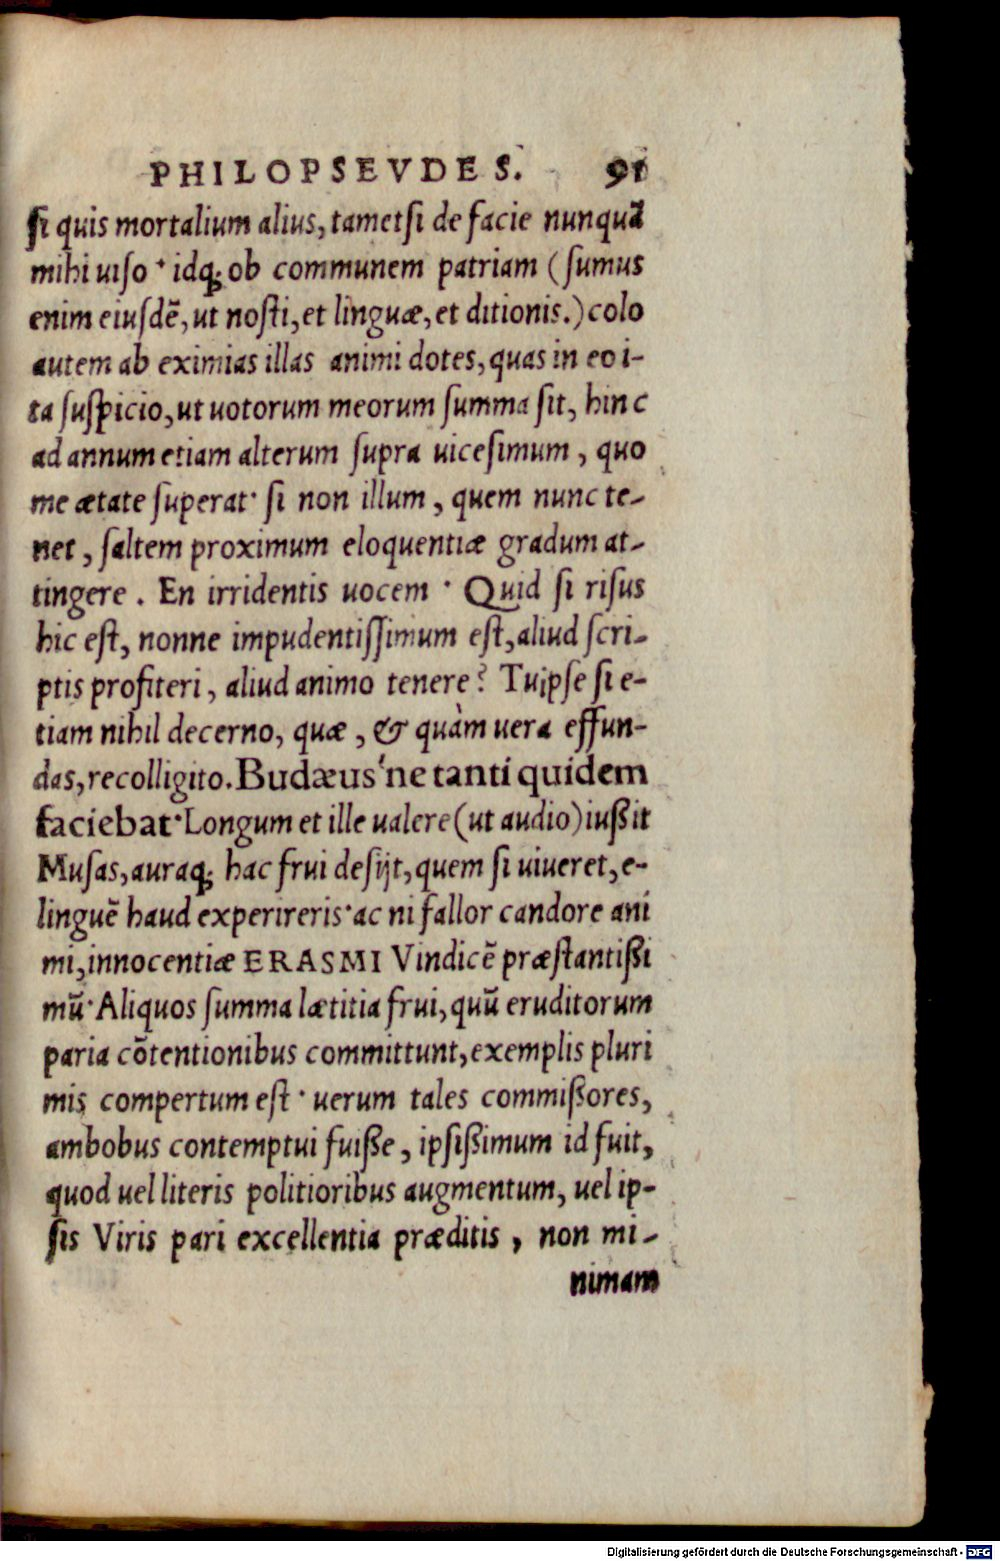 PHILOPSEVDES. 91
ſi quis mortalium alius, tametſi de facie nunquã
mihi uiſo · idq; ob communem patriam (ſumus
enim eiuſdẽ, ut noſti, et linguæ, et ditionis.) colo
autem ab eximias illas animi dotes, quas in eo i-
ta ſuſpicio, ut uotorum meorum ſumma ſit, hinc
ad annum etiam alterum ſupra uiceſimum, quo
me ætate ſuperat· ſi non illum, quem nunc te-
net, ſaltem proximum eloquentiæ gradum at-
tingere. En irridentis uocem · Quid ſi riſus
hic eſt, nonne impudentiſſimum eſt, aliud ſcri-
ptis profiteri, aliud animo tenere? Tuipſe ſi e-
tiam nihil decerno, quæ, & quàm uera effun-
das, recolligito. Budæus ne tanti quidem
faciebat· Longum et ille ualere (ut audio) iußit
Muſas, auraq; hac frui deſijt, quem ſi uiueret, e-
linguẽ haud experireris· ac ni fallor candore ani
mi, innocentiæ ERASMI Vindicẽ præſtantißi
mũ· Aliquos ſumma lætitia frui, quũ eruditorum
paria cõtentionibus committunt, exemplis pluri
mis compertum eſt · uerum tales commißores,
ambobus contemptui fuiße, ipſißimum id fuit,
quod uel literis politioribus augmentum, uel ip-
ſis Viris pari excellentia præditis, non mi-
nimam
Digitalisierung gefördert durch die Deutsche Forschungsgemeinschaft - DFG